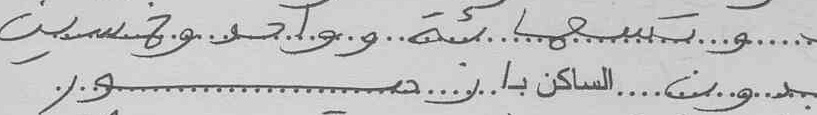 و تسعمائة و واحد و خمسين
بدون الساكن با زحور